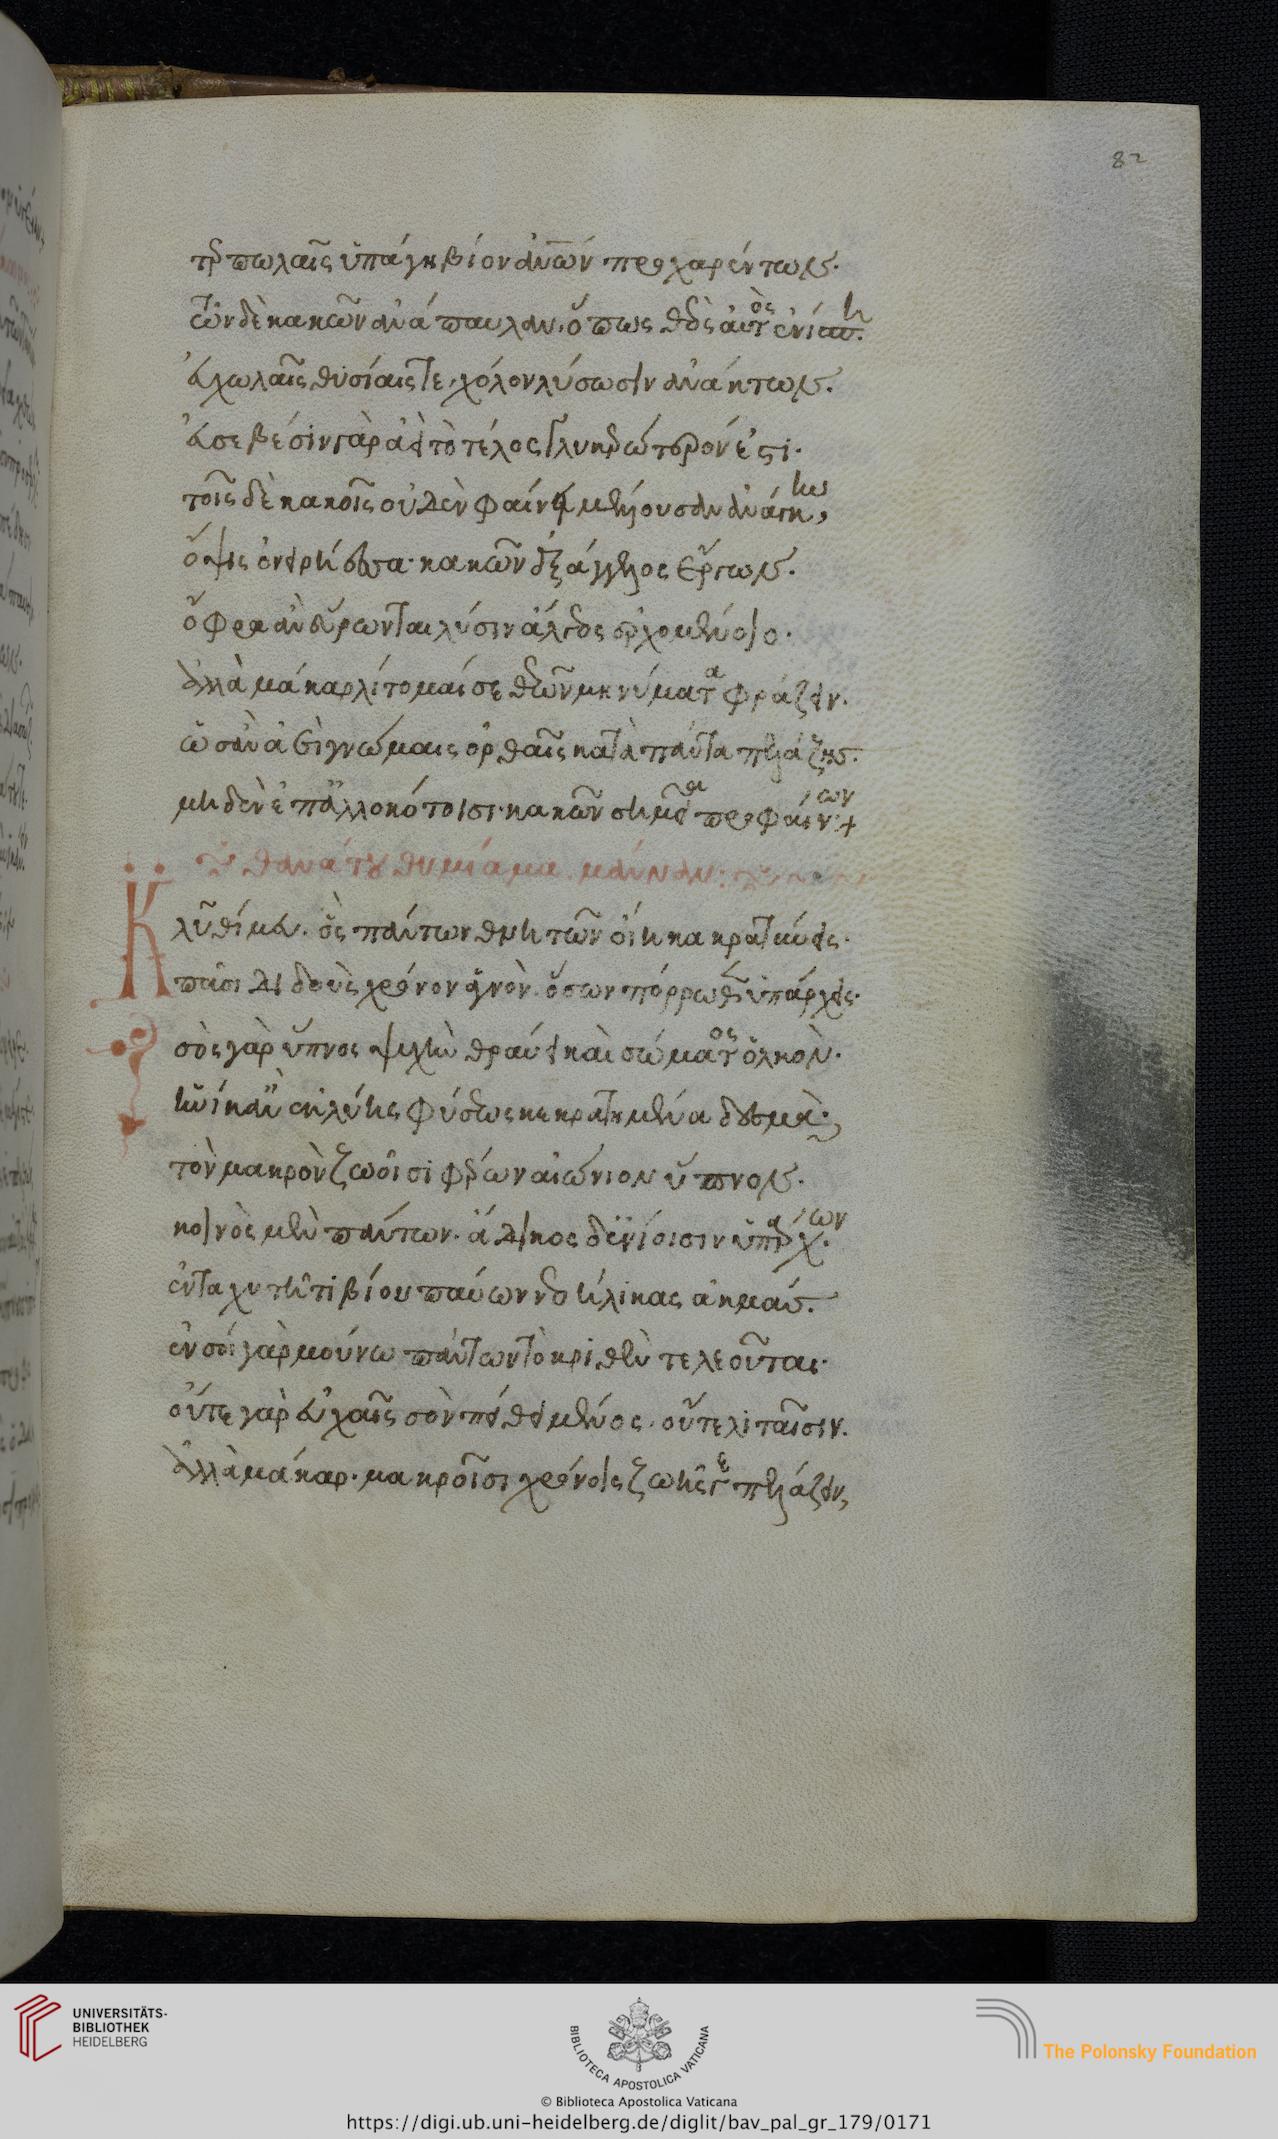 82
τερπωλαῖς ὑπάγει βίον ἀνων προχαρέντων.
τῶν δὲ κακῶν ἀνάπαυλαν. ὅπως θεὸς αὐτὸς ἐνίσπη.
εὐχωλαῖς θυσίαις τε, χόλον λύσωσιν ἀνάκτων.
εὐσεβέσιν γὰρ ἀεὶ τὸ τέλος γλυκερώτερόν ἐστι.
τοῖς δὲ κακοῖς οὐδὲν φαίνει μέλλουσαν ἀνάγκην,
ὄψις ὀνειρήεσσα. κακῶν ἐξάγγελος ἔργων.
ὄφρα ἂν εὕρωνται λύσιν ἄλγεος ἐρχομένοιο.
ἀλλὰ μάκαρ λίτομαί σε θεῶν μηνύματα φράζειν.
ὡς ἂν ἀεὶ γνώμαις ὀρθαῖς κατὰ πάντα πελάζῃς.
μηδὲν ἐπ' ἀλλοκότοισι κακῶν σημεῖα προφαίνων:+
θανάτου θυμίαμα μάνναν:
Κλῦθί μευ. ὃς πάντων θνητῶν οἴηκα κρατύνεις.
πᾶσι διδοὺς χρόνον ἁγνὸν. ὅσων πόρρωθεν ὑπάρχεις.
σὸς γὰρ ὕπνος ψυχὴν θραύει καὶ σώματος ὁλκὸν.
ἡνίκ' ἂν ἐκλύῃς φύσεως κεκρατημένα δεσμὰ,
τὸν μακρὸν ζώοισι φέρων αἰώνιον ὕπνον.
κοινὸς μὲν πάντων. ἄδικος δ' ἐνίοισιν ὑπάρχων.
ἐν ταχυτῆτι βίου παύων νεοήλικας ἀκμάς.
ἐν σοὶ γὰρ μούνω πάντων τὸ κριθὲν τελεοῦται.
οὔτε γὰρ εὐχαῖς σὺν πείθει μένος. οὔτε λιταῖσιν.
ἀλλὰ μάκαρ. μακροῖσι χρόνοις ζωῆς σε πελάζειν,
UNIVERSITÄTS-
BIBLIOTHEK
HEIDELBERG
BIBLIOTECA APOSTOLICA VATICANA
© Biblioteca Apostolica Vaticana
The Polonsky Foundation
https://digi.ub.uni-heidelberg.de/diglit/bav_pal_gr_179/0171